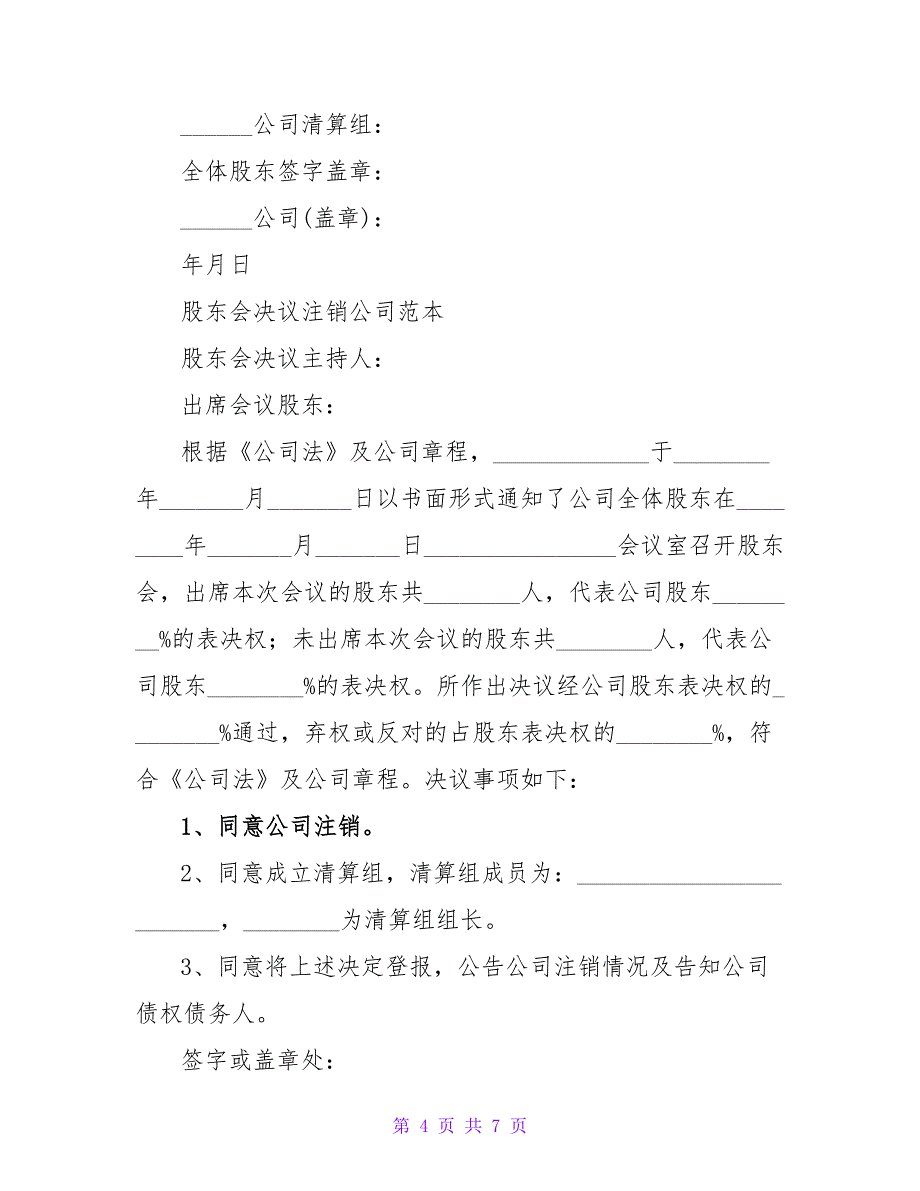 ______公司清算组：
全体股东签字盖章：
______公司(盖章)：
年月日
股东会决议注销公司范本
股东会决议主持人：
出席会议股东：
根据《公司法》及公司章程，_____________于________
年_______月_______日以书面形式通知了公司全体股东在____
____年_______月_______日________________会议室召开股东
会，出席本次会议的股东共________人，代表公司股东______
__%的表决权；未出席本次会议的股东共________人，代表公
司股东________%的表决权。所作出决议经公司股东表决权的_
_______%通过，弃权或反对的占股东表决权的________%，符
合《公司法》及公司章程。决议事项如下：
1、同意公司注销。
2、同意成立清算组，清算组成员为：_________________
_______，________为清算组组长。
3、同意将上述决定登报，公告公司注销情况及告知公司
债权债务人。
签字或盖章处：
第 4 页 共 7 页